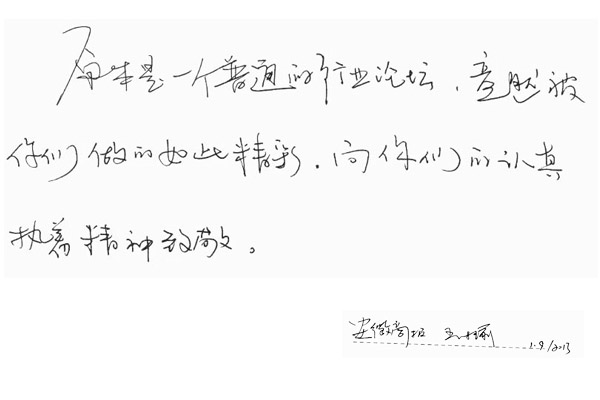 原本是一个普通的行业论坛，竟然被
你们做的如此精彩，向你们的认真
执着精神致敬。
安徽商报 1.9/2013